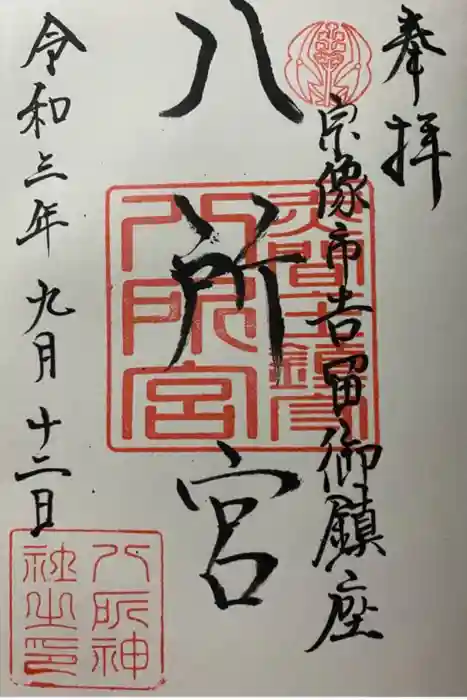 奉拝
宗像市吉留御鎮座
八所宮
令和三年九月十二日
八所宮
八所神
社之印